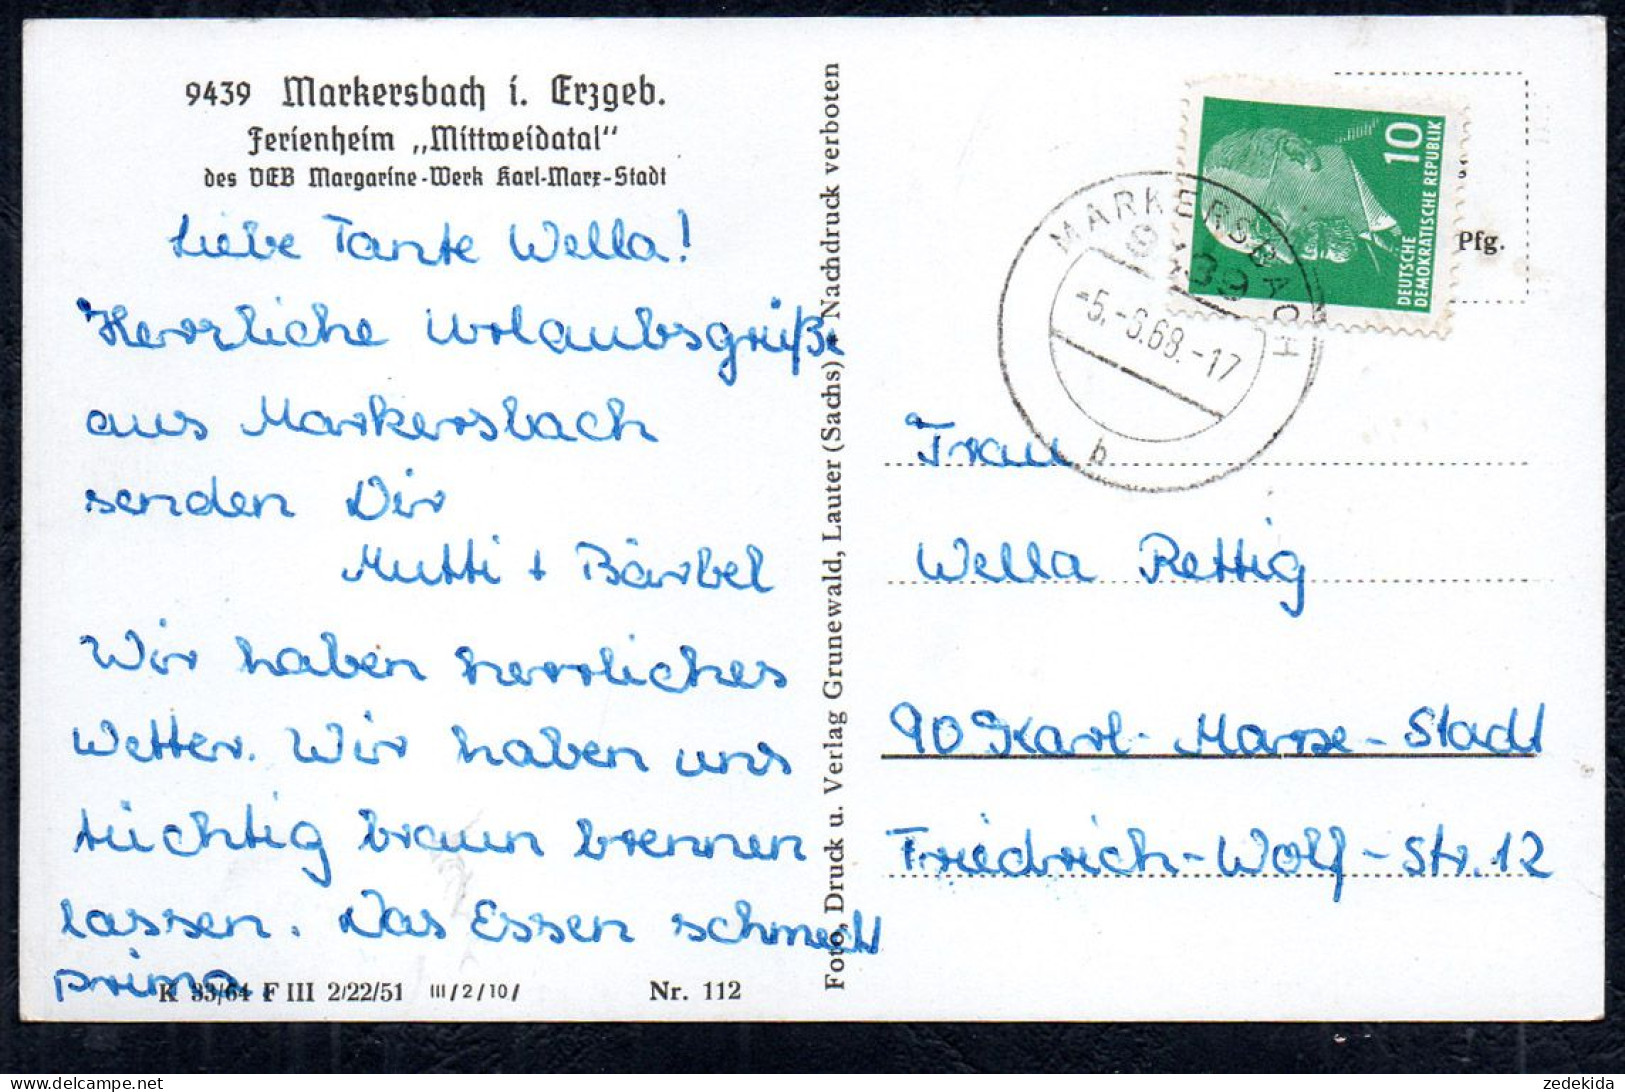 9439 Markersbach i. Erzgeb.
Ferienheim „Mittweidatal“
des VEB Margarine-Werk Karl-Marx-Stadt
Liebe Tante Wella!
Herrliche Urlaubsgrüße
aus Markersbach
senden Dir
Mutti + Bärbel
Wir haben herrliches
Wetter. Wir haben uns
tüchtig braun brennen
lassen. Das Essen schmeckt
prima.
K 33/64 F III 2/22/51 III/2/10/ Nr. 112
Foto, Druck u. Verlag Grunewald, Lauter (Sachs) • Nachdruck verboten
10
DEUTSCHE
DEMOKRATISCHE REPUBLIK
Pfg.
MARKERSBACH
9439
-5.-6.68.-17
b
Frau
Wella Rettig
90 Karl-Marx-Stadt
Friedrich-Wolf-Str. 12
zedekida